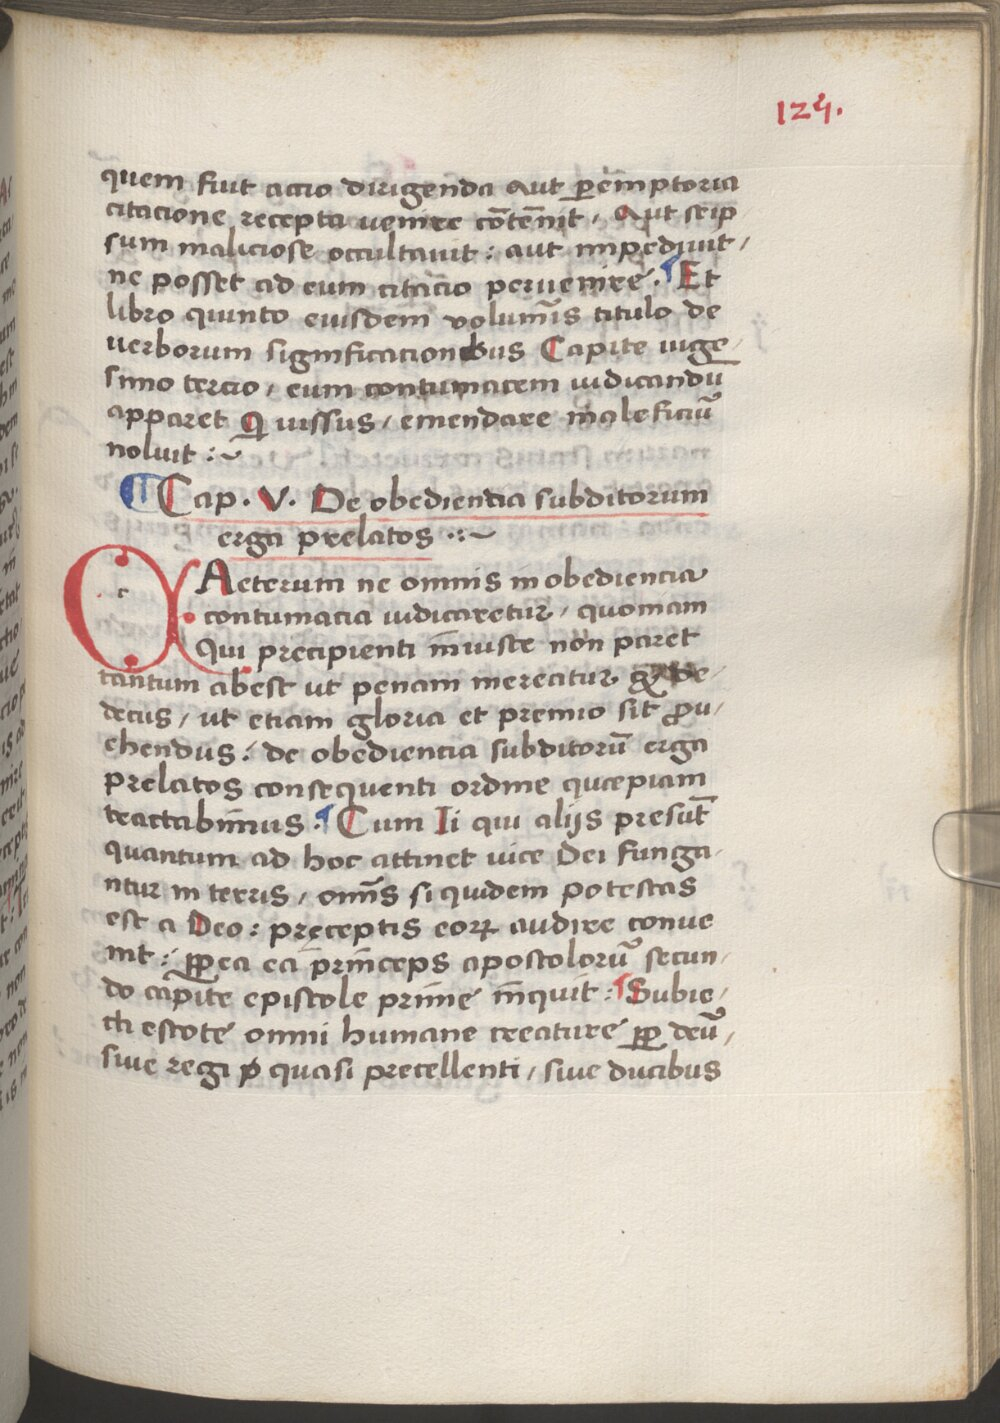 124.
quem fuit actio dirigenda aut peremptoria
citacione recepta venire cōtēnit, Aut seip
sum maliciose occultavit : aut impedivit,
ne posset ad eum citacio pervenire. ¶ Et
libro quinto eiusdem volumīs titulo de
verborum significationibus Capite vige,
simo tercio, eum contumacem iudicandū
apparet Qi iussus, emendare maleficiū
noluit :~
¶ Cap. V. De obedientia subditorum
erga prelatos .:~
CAeterum ne omnis inobediencia
contumacia iudicaretur, quoniam
qui precipienti iniuste non paret
tantum abest ut penam mereatur de,
decus, ut etiam gloria et premio sit ꝓv,
ehendus : de obediencia subditorū erga
prelatos consequenti ordine qucepiam
tractabimus. ¶ Cum Ii qui alijs presūt
quantum ad hoc attinet vice Dei funga,
ntur in terris, omīs si quidem potestas
est a Deo : pręceptis eoꝝ audire conve
nit : ꝓpea eā princeps apostolorū secun,
do capite epistole prime inquit : ¶ Subie,
cti estote omni humane creature ꝓp deū,
sive regi ꝙ quasi precellenti, sive ducibus